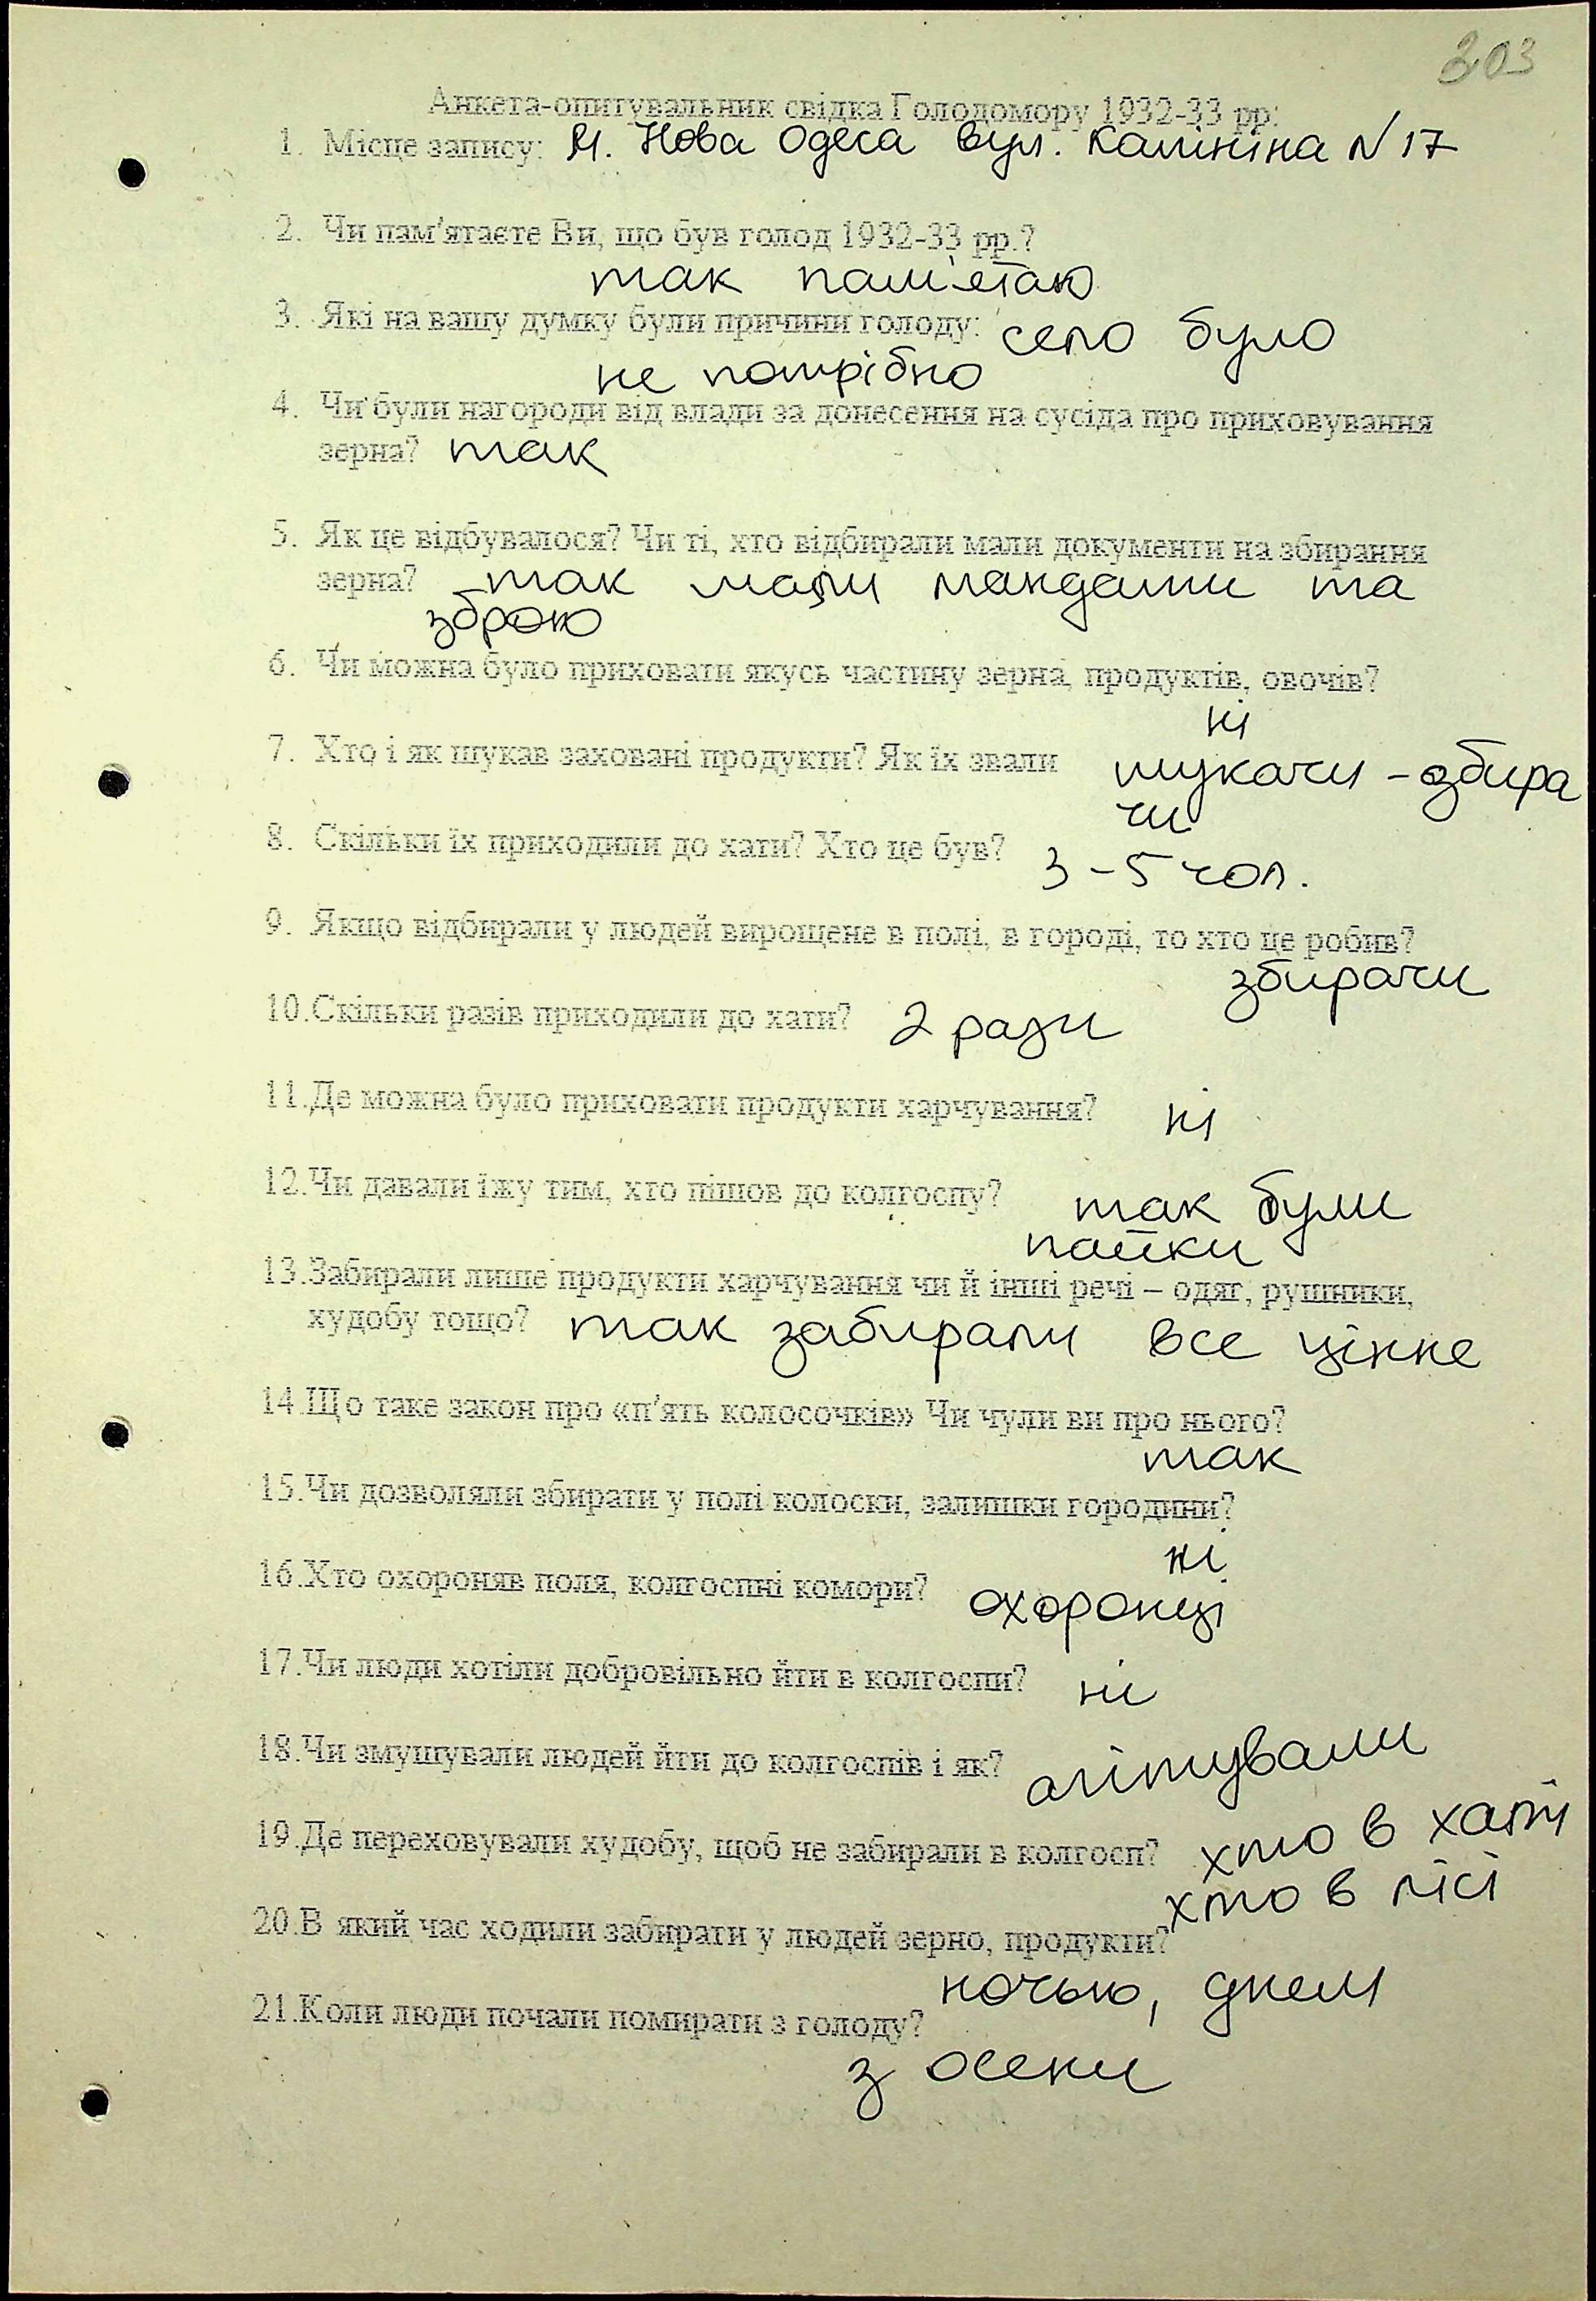 303
Анкета-опитувальник свідка Голодомору 1932-33 рр:
1. Місце запису: М. Нова Одеса вул. Калініна N 17
2. Чи пам'ятаєте Ви, що був голод 1932-33 рр.?
так пам'ятаю
3. Які на вашу думку були причини голоду: село було
не потрібно
4. Чи були нагороди від влади за донесення на сусіда про приховування
зерна? так
5. Як це відбувалося? Чи ті, хто відбирали мали документи на збирання
зерна? так мали мандати та
зброю
6. Чи можна було приховати якусь частину зерна, продуктів, овочів?
ні
7. Хто і як шукав заховані продукти? Як їх звали шукачи - збира
чи
8. Скільки їх приходили до хати? Хто це був? 3 - 5 чол.
9. Якщо відбирали у людей вирощене в полі, в городі, то хто це робив?
збирачи
10.Скільки разів приходили до хати? 2 рази
11.Де можна було приховати продукти харчування? ні
12.Чи давали їжу тим, хто пішов до колгоспу? так були
пайки
13.Забирали лише продукти харчування чи й інші речі – одяг, рушники,
худобу тощо? так забирали все цінне
14.Що таке закон про «п'ять колосочків» Чи чули ви про нього?
так
15.Чи дозволяли збирати у полі колоски, залишки городини?
ні
16.Хто охороняв поля, колгоспні комори? охоронці
17.Чи люди хотіли добровільно йти в колгоспи? ні
18.Чи змушували людей йти до колгоспів і як? агітували
19.Де переховували худобу, щоб не забирали в колгосп? хто в хаті
хто в лісі
20.В який час ходили забирати у людей зерно, продукти?
ночью, днем
21.Коли люди почали помирати з голоду?
з осени